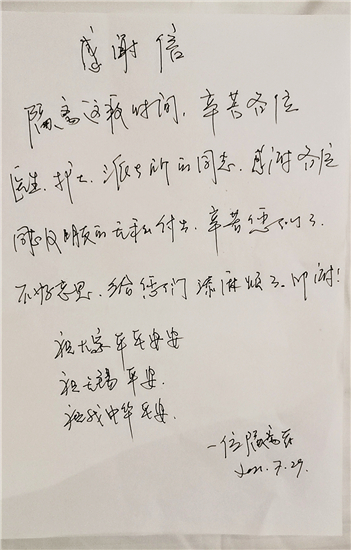 感谢信
隔离这段时间，辛苦各位
医生、护士、派出所的同志，感谢各位
同志们的无私付出，辛苦您们了
不好意思，给您们添麻烦了。叩谢！
祝大家平平安安
祝无锡平安
祝我中华平安
一位隔离者
2021.7.29.